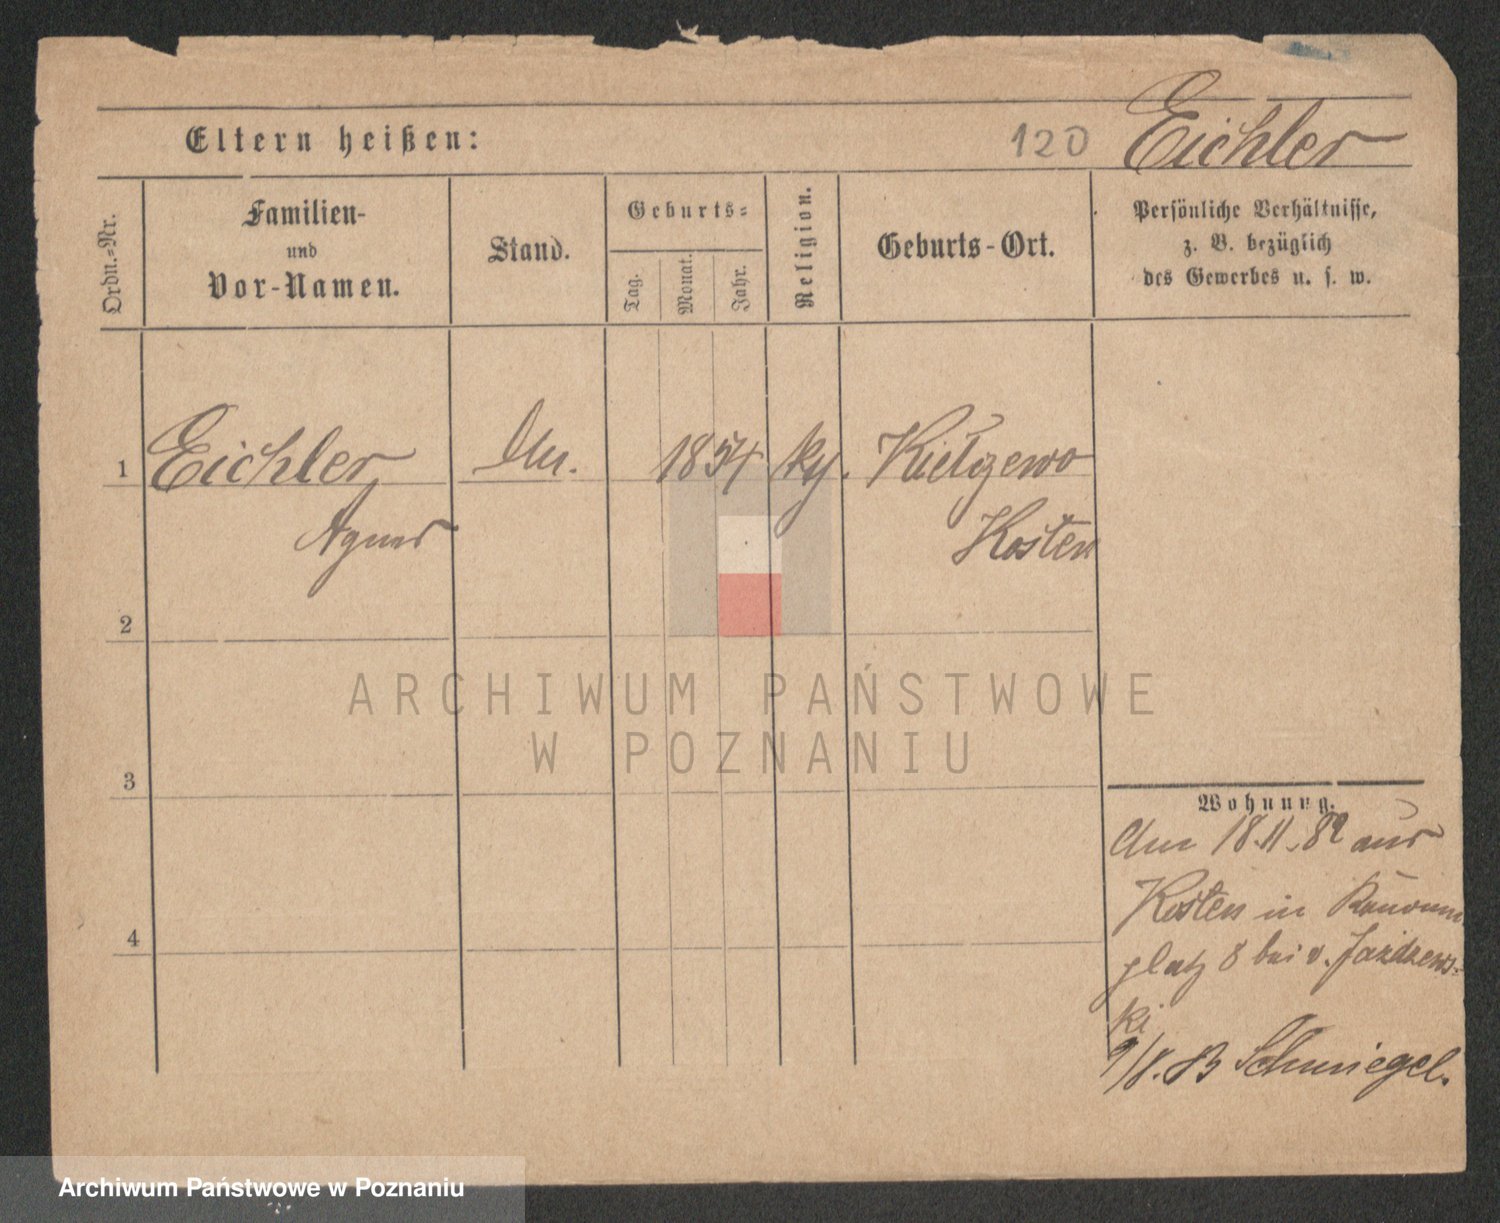 Eltern heißen:
120 Eichler
Ordn.-Nr.
Familien-
und
Vor-Namen.
Stand.
Geburts-
Tag.
Monat.
Jahr.
Religion.
Geburts-Ort.
Persönliche Verhältnisse,
z. B. bezüglich
des Gewerbes u. s. w.
1 Eichler 1854 Kietczewo
Agnes Kosten
2
3
4
ARCHIWUM PAŃSTWOWE
W POZNANIU
Wohnung.
Am 18.11.82 aus
Kosten in
platz 8 bei v. Jazdzews-
ki
9/8.83 Schmiegel.
Archiwum Państwowe w Poznaniu